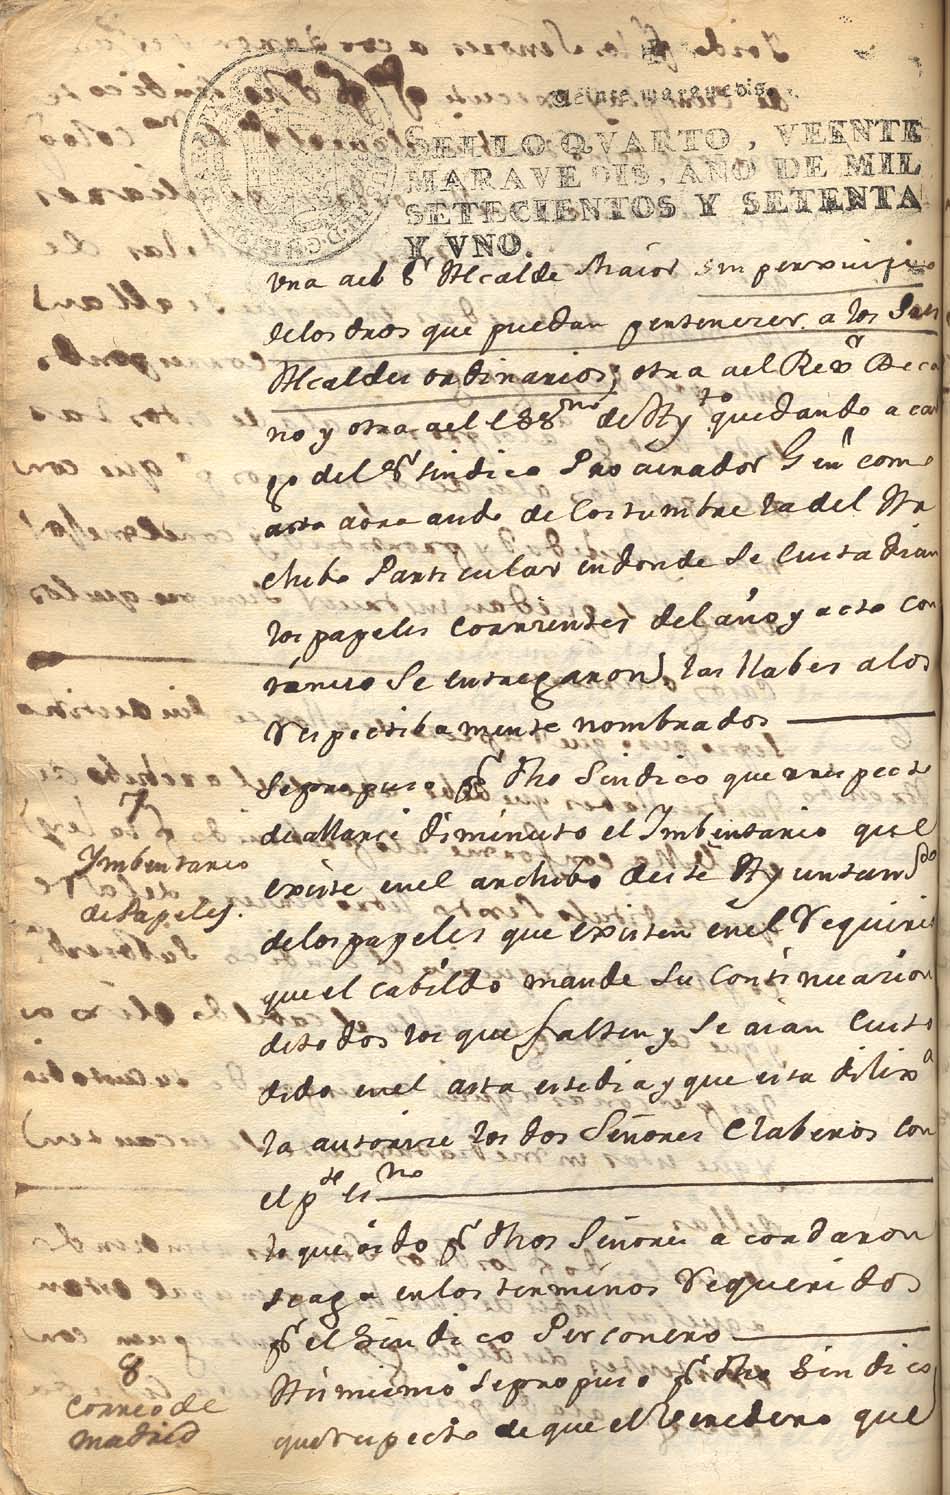 Veinte maravedis.
SELLO QVARTO, VEINTE
MARAVEDIS, AÑO DE MIL
SETECIENTOS Y SETENTA
Y VNO.
vna ael Sr Alcalde Maior sin perxuicio
delos dros que puedan pertenecer a los Sres
Alcaldes ordinarios; otra ael Rexor Deca
no y otra ael essno de Aytto quedando a car
go del Sr sindico Procurador Genl como
asta aora ando de Costumbre la del Ar
chibo Particular en donde se Custodian
los papeles Corrientes del año y acto con
tinuo Se entregaron las llabes a los
respectibamente nombrados
Sepropuso pr dho Sindico que a respecto
de allarse diminuto el Imbentario que
existe en el archibo de este Ayuntamto
delos papeles que existen en el requirio
que el cabildo mande su Continuacion
de todos los que falten y se aian Custo
dido en el asta este dia y que esta dilixa
la autorice los dos Señores Claberos con
el pte esno
lo que oido pr dhos Señores acordaron
se aga en los terminos requeridos
pr el Sindico Personero
Asimismo se propuso pr dho Sindico
que respecto de que el Veredero que
7
Ymbentario
de Papeles.
8
Correo de
Madrid